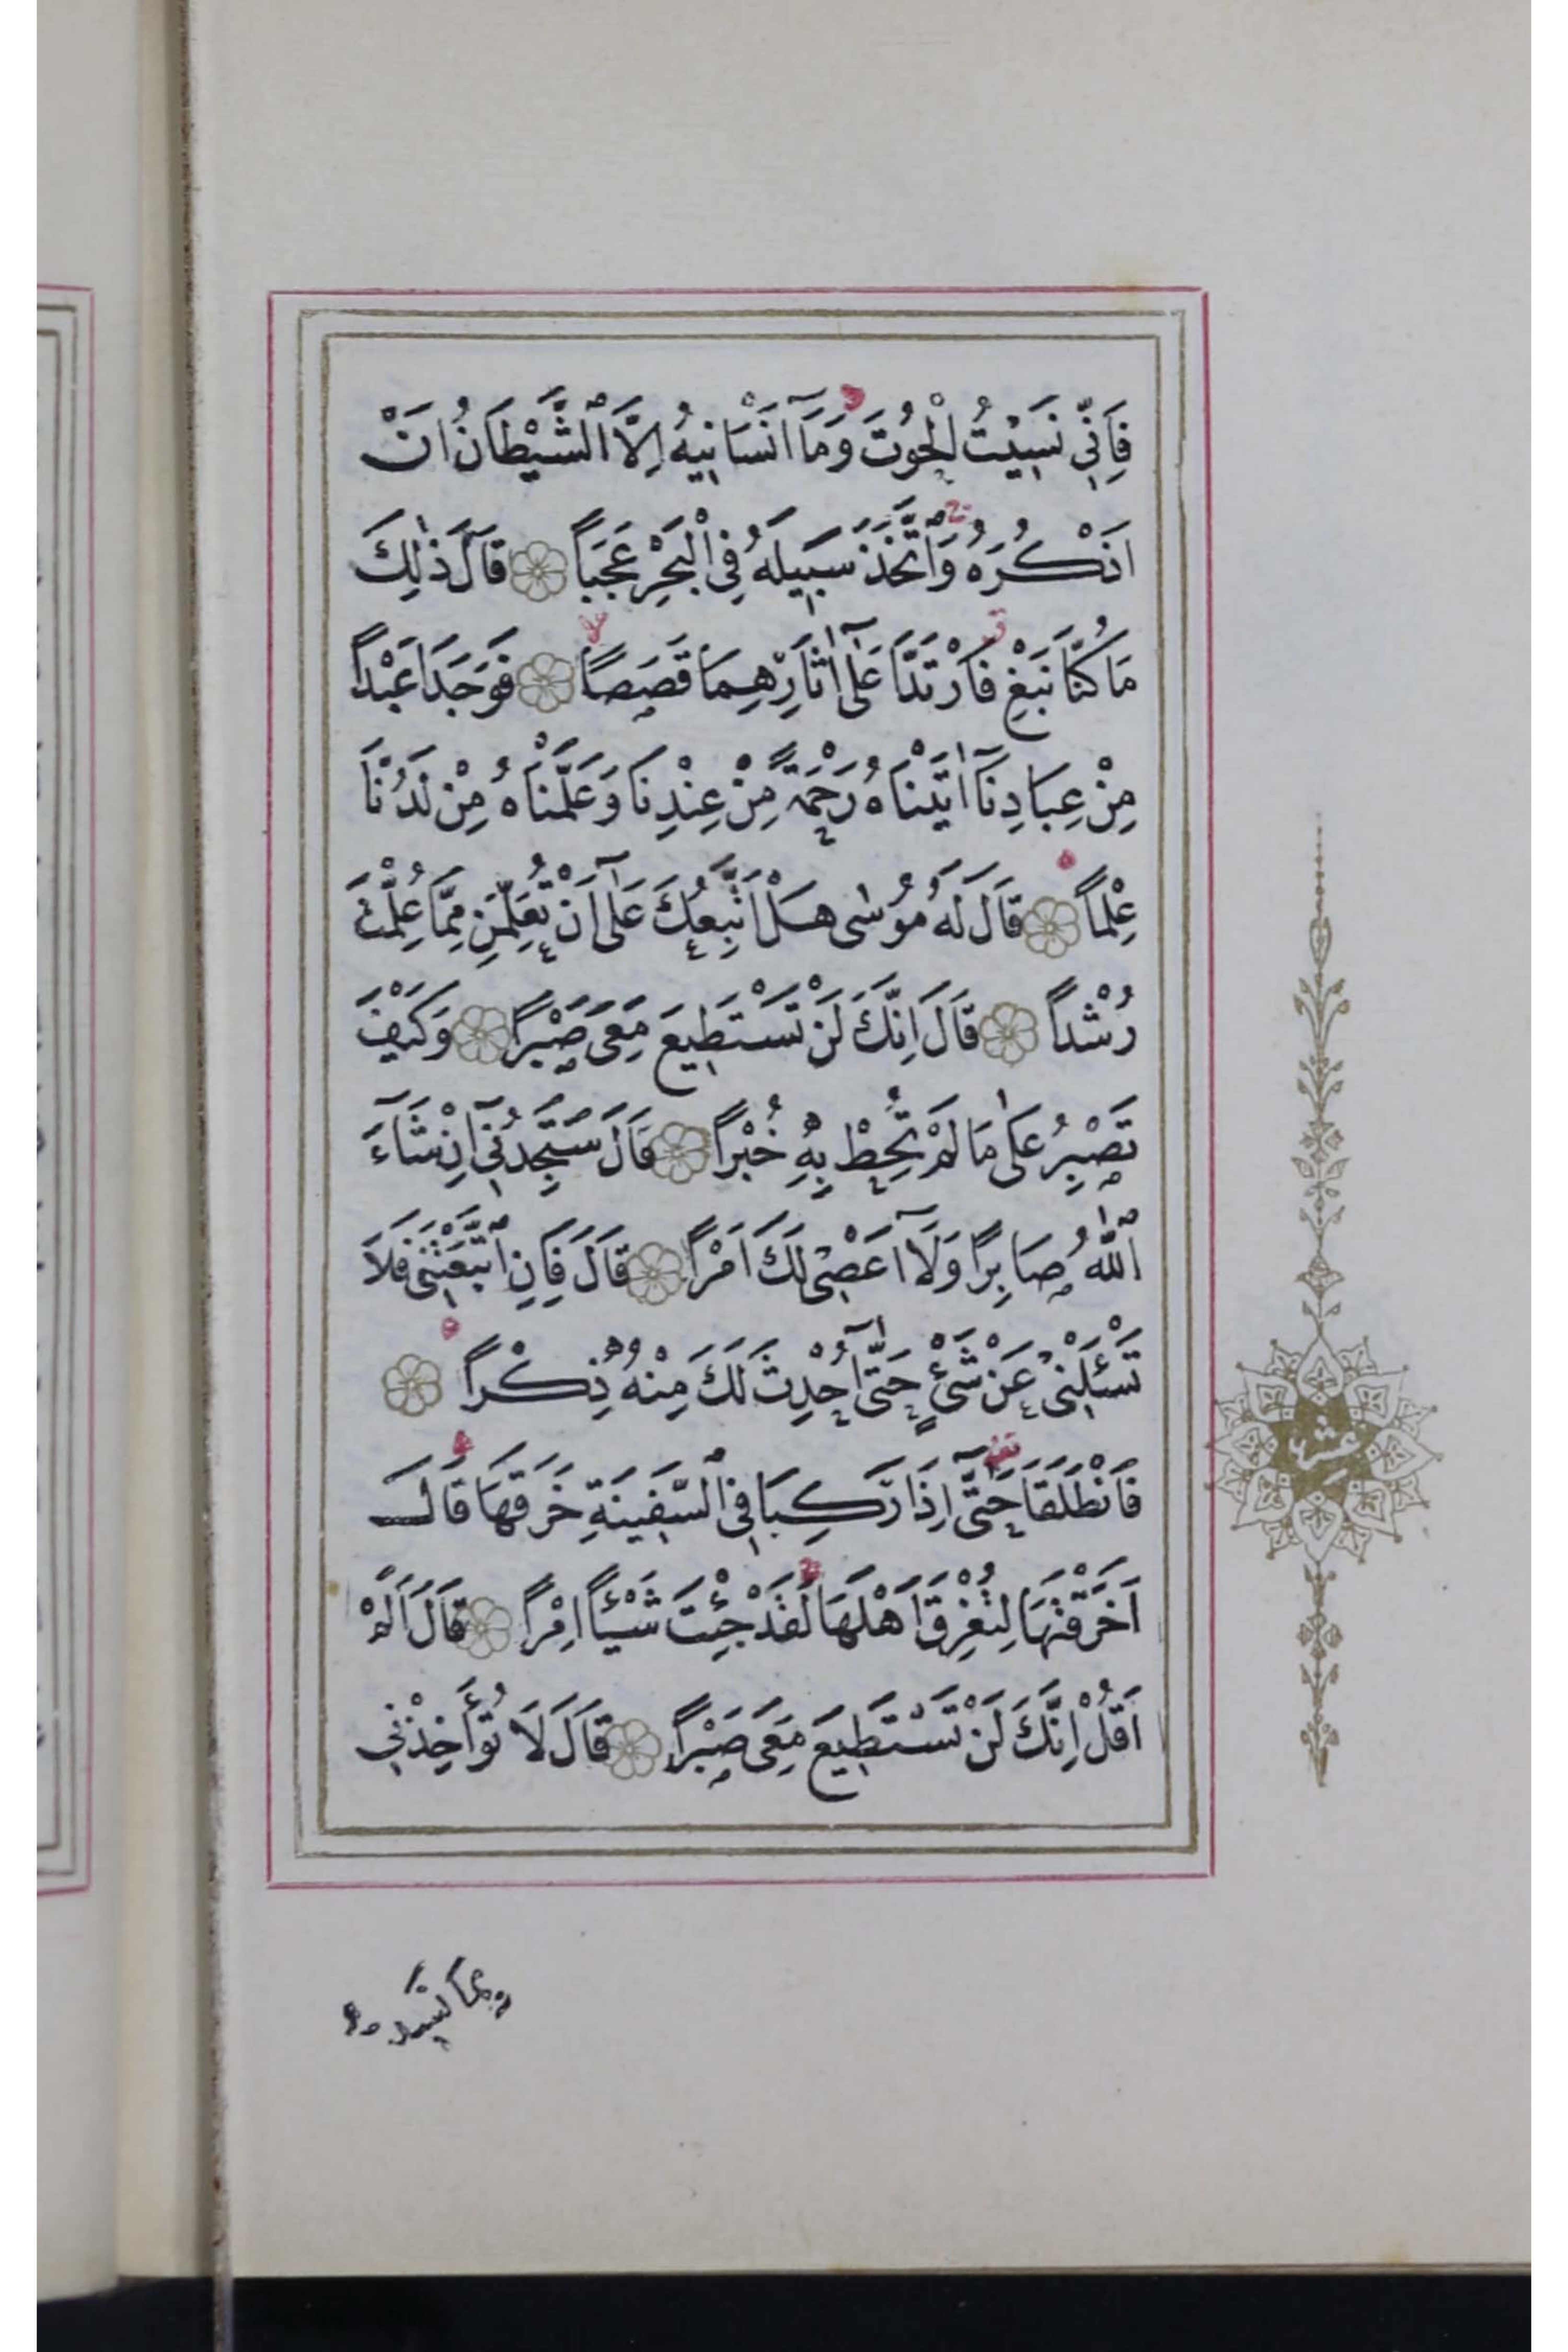 فَاِنّ۪ي نَس۪يتُ الْحُوتَ وَمَآ اَنْسَان۪يهُ اِلَّا الشَّيْطَانُ اَنْ
اَذْكُرَهُ وَاتَّخَذَ سَب۪يلَهُ فِي الْبَحْرِ عَجَباً قَالَ ذٰلِكَ
مَا كُنَّا نَبْغِ فَارْتَدَّا عَلٰٓى اٰثَارِهِمَا قَصَصاً فَوَجَدَا عَبْداً
مِنْ عِبَادِنَآ اٰتَيْنَاهُ رَحْمَةً مِنْ عِنْدِنَا وَعَلَّمْنَاهُ مِنْ لَدُنَّا
عِلْماً قَالَ لَهُ مُوسٰى هَلْ اَتَّبِعُكَ عَلٰٓى اَنْ تُعَلِّمَنِ مِمَّا عُلِّمْتَ
رُشْداً قَالَ اِنَّكَ لَنْ تَسْتَط۪يعَ مَعِيَ صَبْراً وَكَيْفَ
تَصْبِرُ عَلٰى مَا لَمْ تُحِطْ بِه۪ خُبْراً قَالَ سَتَجِدُن۪ٓي اِنْ شَآءَ
اللّٰهُ صَابِراً وَلَآ اَعْص۪ي لَكَ اَمْراً قَالَ فَاِنِ اتَّبَعْتَن۪ي فَلَا
تَسْـَٔلْن۪ي عَنْ شَيْءٍ حَتّٰٓى اُحْدِثَ لَكَ مِنْهُ ذِكْراً
فَانْطَلَقَا حَتّٰٓى اِذَا رَكِبَا فِي السَّف۪ينَةِ خَرَقَهَا قَالَ
اَخَرَقْتَهَا لِتُغْرِقَ اَهْلَهَا لَقَدْ جِئْتَ شَيْـٔاً اِمْراً قَالَ اَلَمْ
اَقُلْ اِنَّكَ لَنْ تَسْتَط۪يعَ مَعِيَ صَبْراً قَالَ لَا تُؤَاخِذْن۪ي
عشر
بِمَا نَس۪يتُ